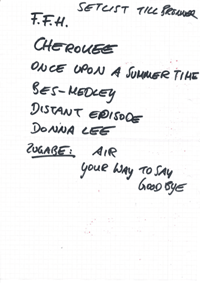 SETLIST TILL BRÖNNER
F.F.H.
CHEROKEE
ONCE UPON A SUMMERTIME
BES-MEDLEY
DISTANT EPISODE
DONNA LEE
ZUGABE: AIR
YOUR WAY TO SAY
GOODBYE